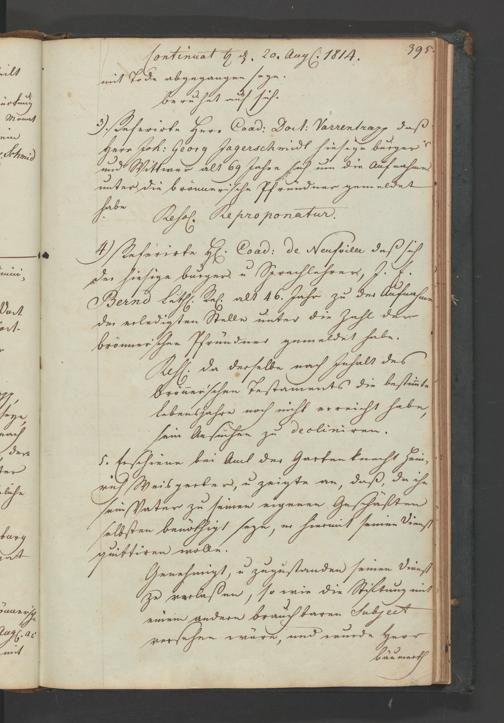 Continuat d. 20. Aug. 1814. 395.
mit Tode abgegangen seye.
beruhet auf sich.
3) Referirte Herr Coad: Doct: Varrentrapp daß
Herr Joh: Georg Jagerschmidt hiesige burger
und Wittwer alt 69 Jahre sich um die Aufnahme
unter die brönnerische Pfründner gemeldet
habe
Resol. Reproponatur.
4) Referirte H: Coad: de Neufville daß sich
der hiesige burger u Sprachlehrer, J. J.
Bernd luth. Rel. alt 46. Jahr zu der Aufnahme
der erledigten Stelle unter die Zahl der
brönnerischen Pfründner gemeldet habe.
Res: da derselbe nach Inhalt des
brönnerischen Testaments die bestimte
lebensjahre noch nicht erreicht habe,
sein Ansuchen zu decliniren.
5. Erschiene bei Amt der Gartenknecht Hein-
rich Weisgerber, u zeigte an, daß, da ihn
sein Vater zu seinen eigenen Geschäften
selbsten benöthigt seye, er hiermit seinen Dienst
quittiren wolle.
Genehmigt, u zugestanden seinen Dienst
zu verlaßen, so wie die Stiftung mit
einem andern brauchbaren Subject
versehen wäre, und wurde Herr